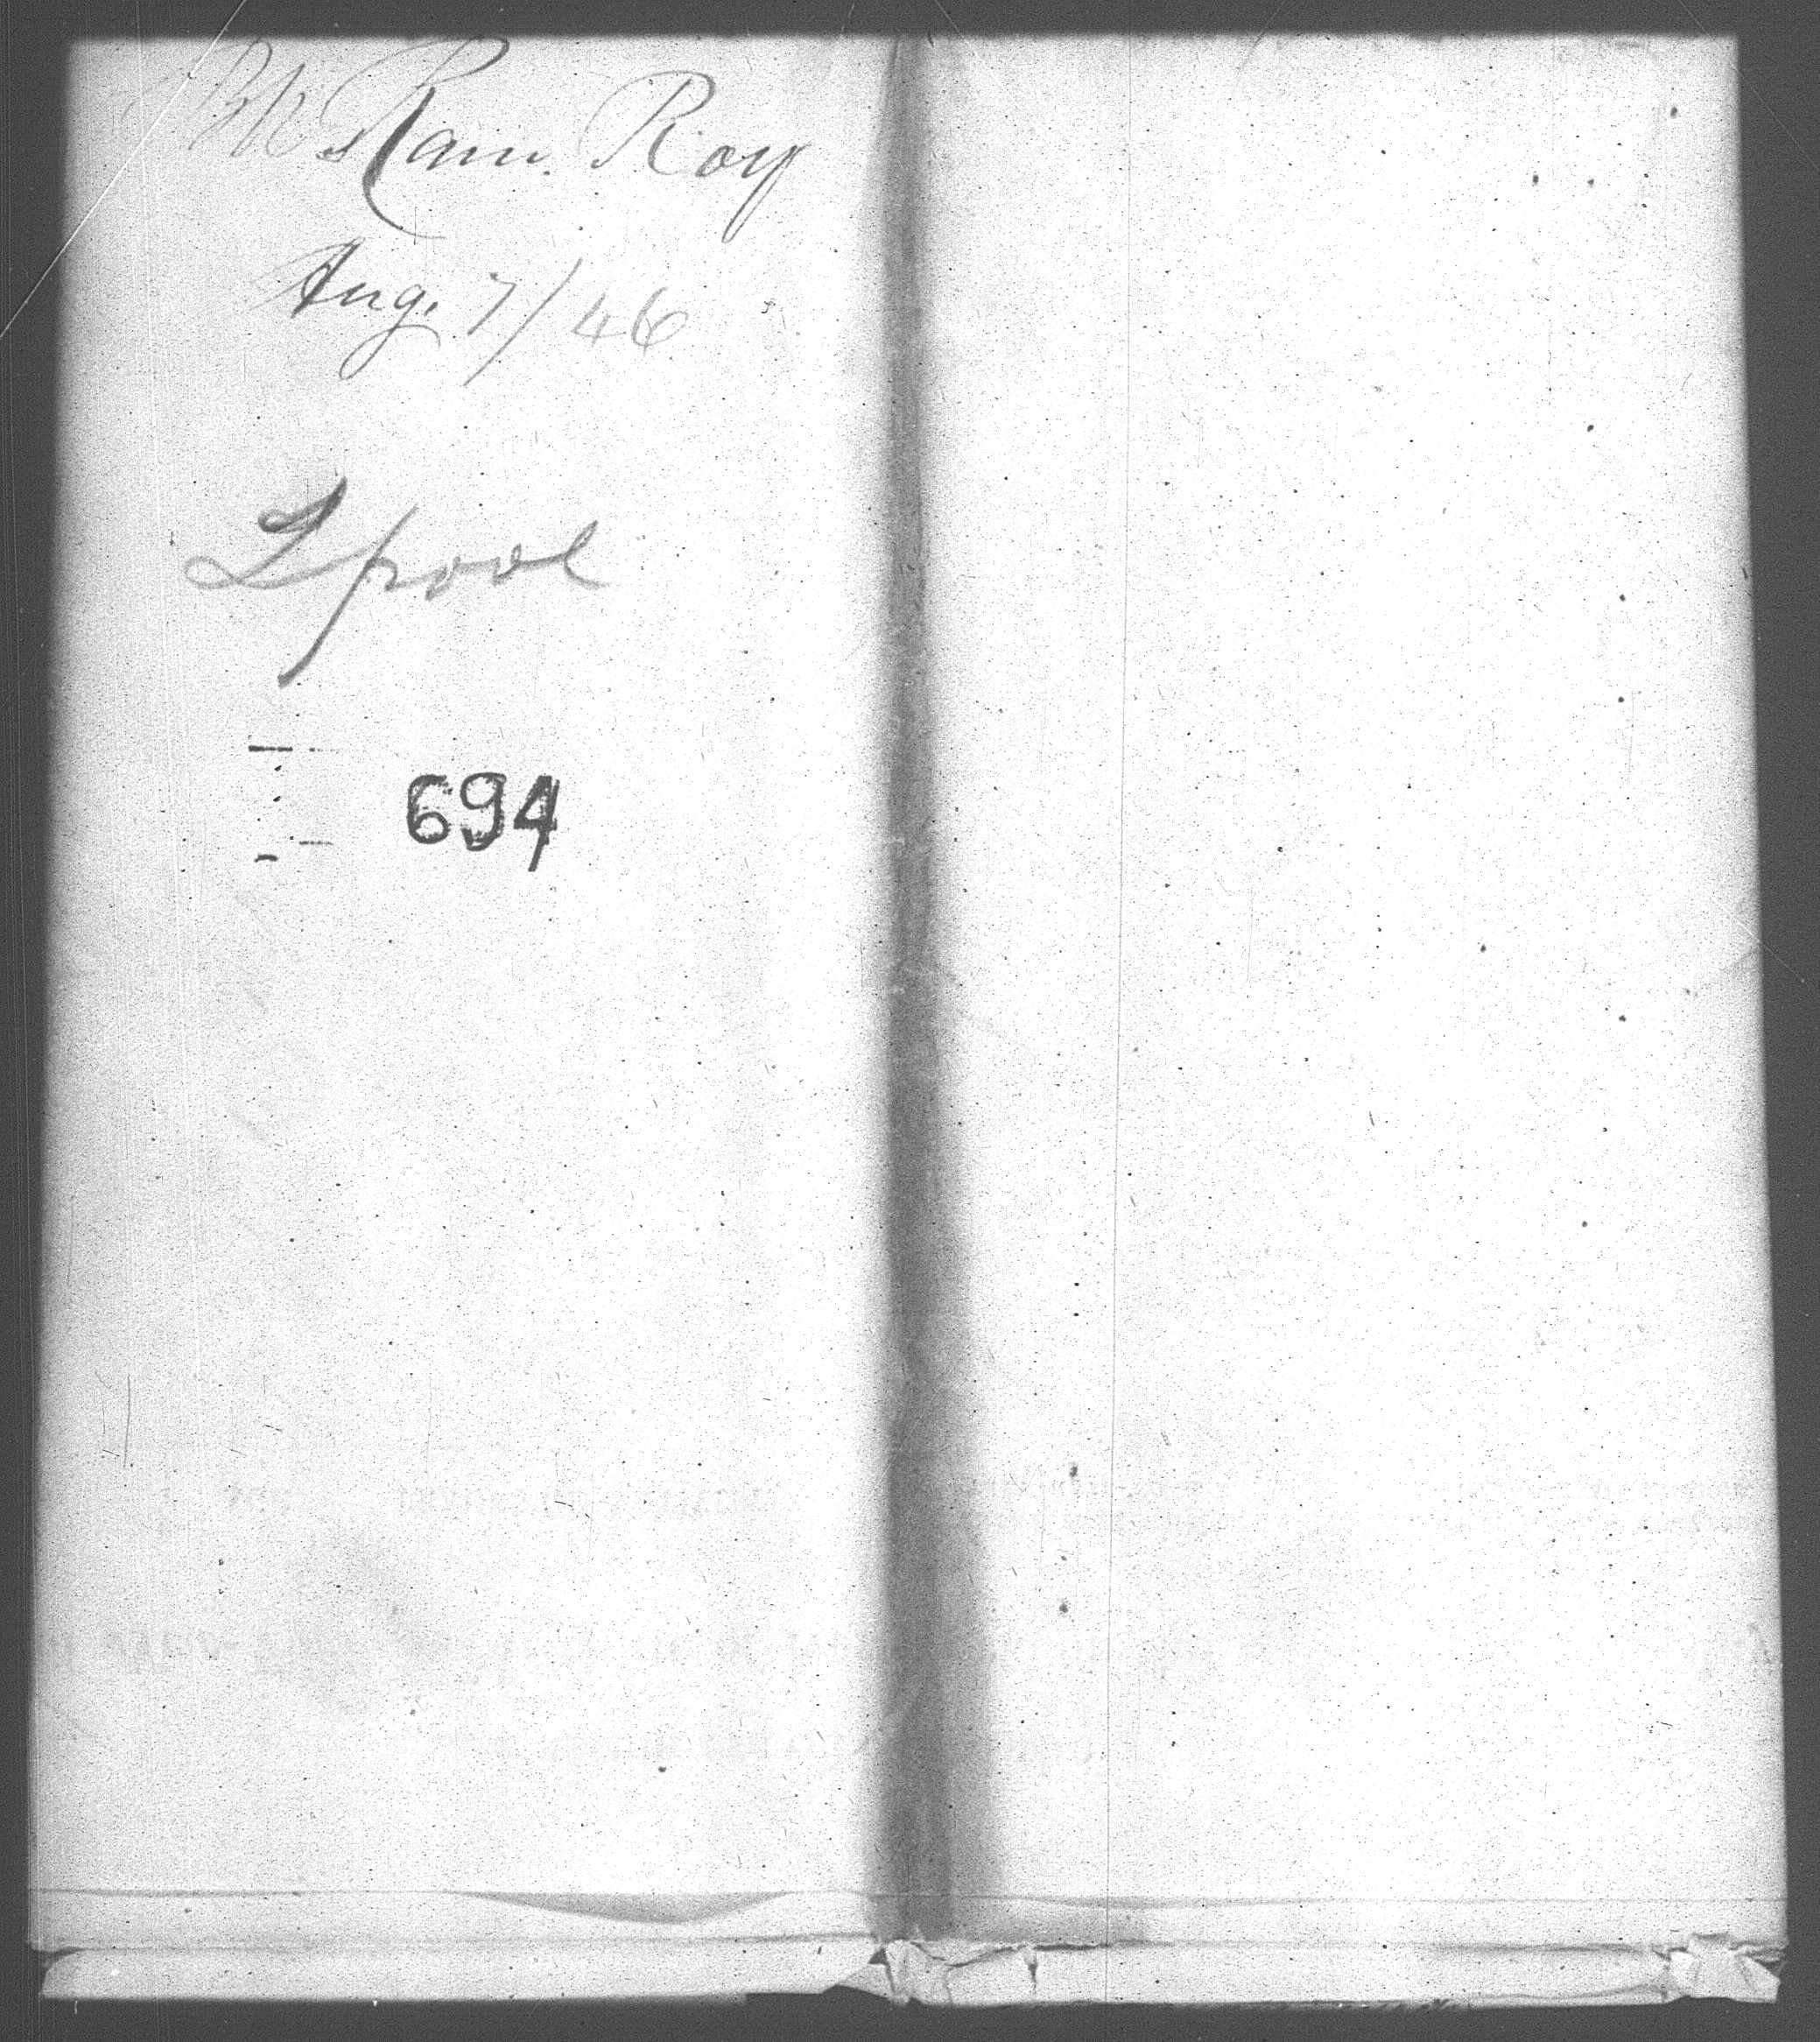 Ram. Roy
Aug. 7/46
Lpool
694